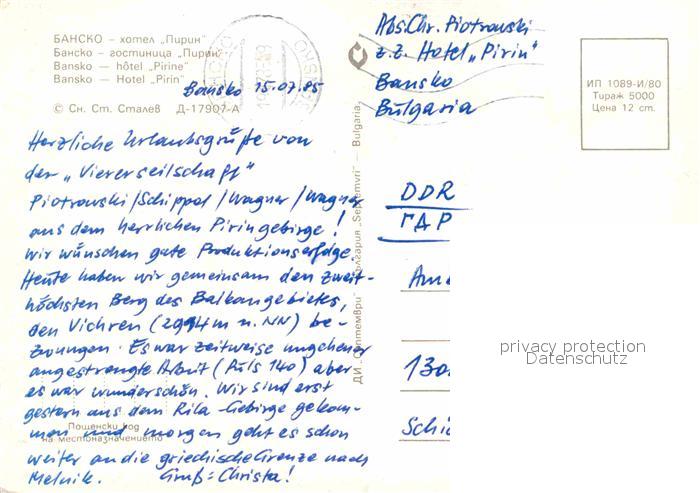 БАНСКО – хотел „Пирин"
Банско – гостиница „Пирин"
Bansko – hôtel „Pirine"
Bansko – Hotel „Pirin"
© Сн. Ст. Сталев Д-17907-А
Bansko 15.07.85
Herzliche Urlaubsgrüße von
der „Viererseilschaft"
Piotrowski/Schippel/Wagner/Wagner
aus dem herrlichen Piringebirge!
Wir wünschen gute Produktionserfolge.
Heute haben wir gemeinsam den zweit-
höchsten Berg des Balkangebietes,
den Vichren (2914m ü. NN) be-
zwungen. Es war zeitweise ungeheuer
angestrengte Arbeit (Puls 140) aber
es war wunderschön. Wir sind erst
gestern aus dem Rila-Gebirge gekom-
men und morgen geht es schon
weiter an die griechische Grenze nach
Melnik. Gruß: Christa!
Пощенски код
на местоназначението
ДИ „Септември" България „Septemvri" – Bulgaria
Abs. Chr. Piotrowski
z.Z. Hotel „Pirin"
Bansko
Bulgaria
ИП 1089-И/80
Тираж 5000
Цена 12 ст.
DDR
ГДР
130
privacy protection
Datenschutz